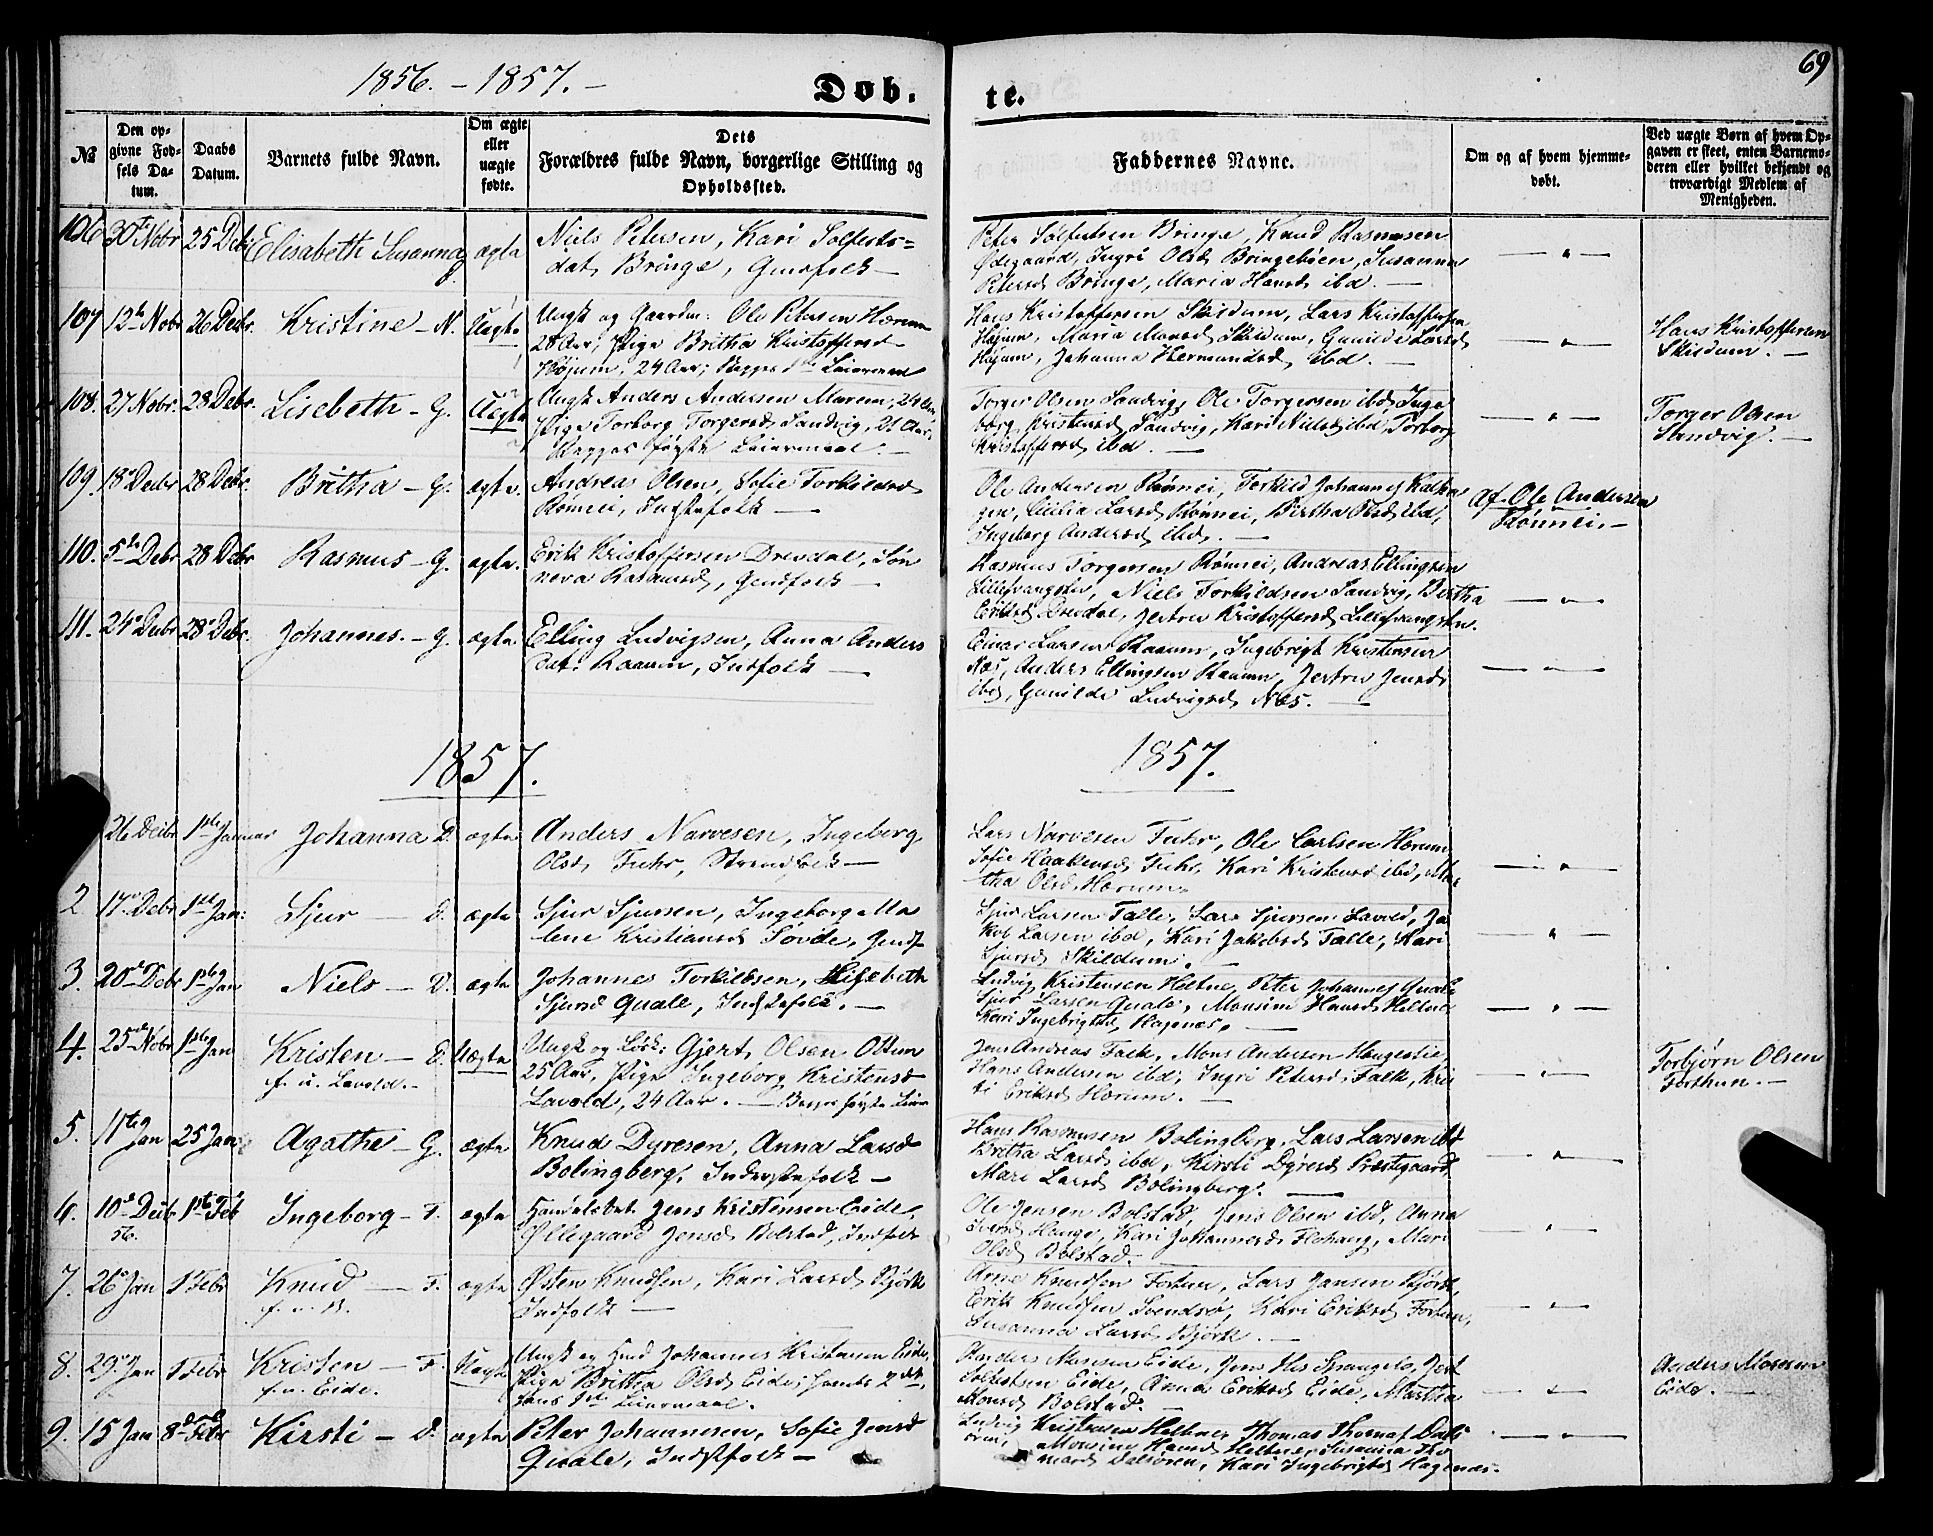 69
1856. - 1857. -
Døb. te.
No
Den opgivne Fødsels Datum.
Daabs Datum.
Barnets fulde Navn.
Om ægte eller uægte fødte.
Dets Forældres fulde Navn, borgerlige Stilling og Opholdssted.
Faddernes Navne.
Om og af hvem hjemmedøbt.
Ved uægte Børn af hvem Opgaven er skeet, enten Barnemoderen eller hvilket bekjendt og troværdigt Medlem af Menigheden.
106 30te Nobr 25 Debr Elisabeth Susanna ægte
Niels Petersen, Kari Solferts=
dat, Bringe, Gmdfolk —
Peter Solfertsen Bringe, Knud Rasmusen
Ødegaard, Ingri Olsd Bringebøen, Susanna
Petersd Bringe, Maria Hansd ibd. —
107 12te Nobr 26 Debr. Kristine - N. Uægte
Ungk og Gaardm: Ole Petersen Hærum
28 Aar, Pige Britha Kristoffersd
Højum, 24 Aar; Begges 1ste Leiermaal
Hans Kristoffersen Skildum, Lars Kristoffersen
Højum, Maria Monsd Skildum, Gunilde Larsd
Højum, Johanna Hermundsd ibd. —
Hans Kristoffersen
Skildum. —
108. 27 Nobr. 28 Debr. Lisebeth - G. Uægte
Ungk Anders Andersen Marem, 24 Aar
Pige Torborg Torgersd Sandvig, 21 Aar,
Begges første Leiermaal. —
Torger Olsen Sandvig, Ole Torgersen ibd, Inge
borg Kristensd Sandvig, Kari Nielsd ibd, Torborg
Kristoffersd ibd. —
Torger Olsen
Sandvig. —
109. 18de Debr 28 Debr. Britha - G. ægte.
Andreas Olsen, Sofie Torkildsd
Rønnei, Indstefolk —
Ole Andersen Rønnei, Torkild Johannes
gen, Cicilia Larsd Rønnei, Birtha Olsd ibd,
Ingeborg Andersd ibd. —
Af Ole Andersen
Rønnei. —
110. 5te Debr 28 Debr Rasmus - G. ægte.
Erik Kristoffersen Drevdal, Søn
neva Rasmusd, Gmdfolk —
Rasmus Torgersen Rønnei, Andreas Ellingsen
Lillesvangsten, Niels Torkildsen Sandvig, Birtha
Eriksd Drevdal, Jertru Kristoffersd Lillesvangsten.
111. 24de Debr 28de Debr. Johannes. - G. ægte
Elling Ludvigsen, Anna Anders
dat. Raaum, Indfolk —
Einar Larsen Raaum, Ingebrigt Kristensen
Næs, Anders Ellingsen Raaum, Jertru Jensd
ibd, Gunilde Ludvigsd Næs. —
1857.
1857.
26 Debr 1ste Januar Johanna D. ægte
Anders Narvesen, Ingeborg
Olsd, Fuhr, Strandfolk —
Lars Narvesen Fuhr, Ole Carlsen Hærum
Sofie Haakensd, Fuhr, Kari Kristensd ibd, Mar
tha Olsd Hærum.
2 17de Debr 1ste Jan: Sjur — D. ægte
Sjur Sjursen, Ingeborg Ma
lene Kristiansd Søvde, Gmdf
Sjur Larsen Talle, Lars Sjursen Lavold, Ja
kob Larsen ibd, Kari Jakobsd Talle, Kari
Sjursd Skildum.
3. 20de Debr 1ste Jan Niels — D. ægte
Johannes Torkildsen, Lisebeth
Sjursd Quale, Indstefolk. —
Ludvig Kristensen Heltne, Peter Johannes Quale
Sjur Larsen Quale, Monsine Hansd Heltne
Kari Ingebrigtsd, Hagenæs. —
4. 25de Nobr 1ste Jan Kristen — D. Uægte
f. u. Lavold. —
Ungk og Løsk: Gjert Olsen Ottum
25 Aar, Pige Ingeborg Kristensd
Lavold, 24 Aar. — Begges første Leier
Jens Andreas Falk, Mons Andersen Haugestie,
Hans Andersen ibd, Ingri Petersd Falk, Kris
ti Eriksd Hærum. —
Torbjørn Olsen
Forthun. —
5. 11te Jan 25 Jan Agathe - G. ægte
Knud Dyresen, Anna Larsd
Bolingberg, Inderstefolk —
Hans Rasmusen Bolingberg, Lars Larsen ibd
Britha Larsd ibd, Kirsti Dyresd Præstegaard
Mari Larsd Bolingberg. —
6. 10de Debr 56. 1ste Feb Ingeborg - F. ægte
Jens Kristensen Eide,
Øllegaard Jensd Bolstad, Indfolk
Ole Jensen Bolstad, Jens Olsen ibd, Anna
Iversd Hauge, Kari Johannesd Flohaug, Mari
Olsd Bolstad.
7. 26de Jan 1 Febr Knud — F. ægte
f. u. B.
Østen Knudsen, Kari Larsd Bjørk
Indfolk —
Arne Knudsen Fortun, Lars Jansen Bjørk,
Erik Knudsen Svendsø, Kari Eriksd Fortun,
Susanna Larsd Bjørk. —
8. 29de Jan 1 Febr Kristen - F. Uægte
f. u. Eide.
Ungk og Gmd Johannes Kristensen Eide,
Pige Britha Olsd Eide; hendes 2det,
hans 1ste Leiermaal.
Anders Monsen Eide, Jens Spangelo, Jert
Eide, Anna Eriksd Eide, Martha
Monsd Bolstad. —
Anders Monsen
Eide. —
9. 15 Jan 8de Febr Kirsti - D. ægte
Peter Johannesen, Sofie Jensd
Quale, Indstfolk —
Ludvig Kristensen Heltne, Thomas Thomas Dals
øren, Monsine Hansd Heltne, Susanna Tho
masd Dalsøren, Kari Ingebrigtsd Hagenæs.